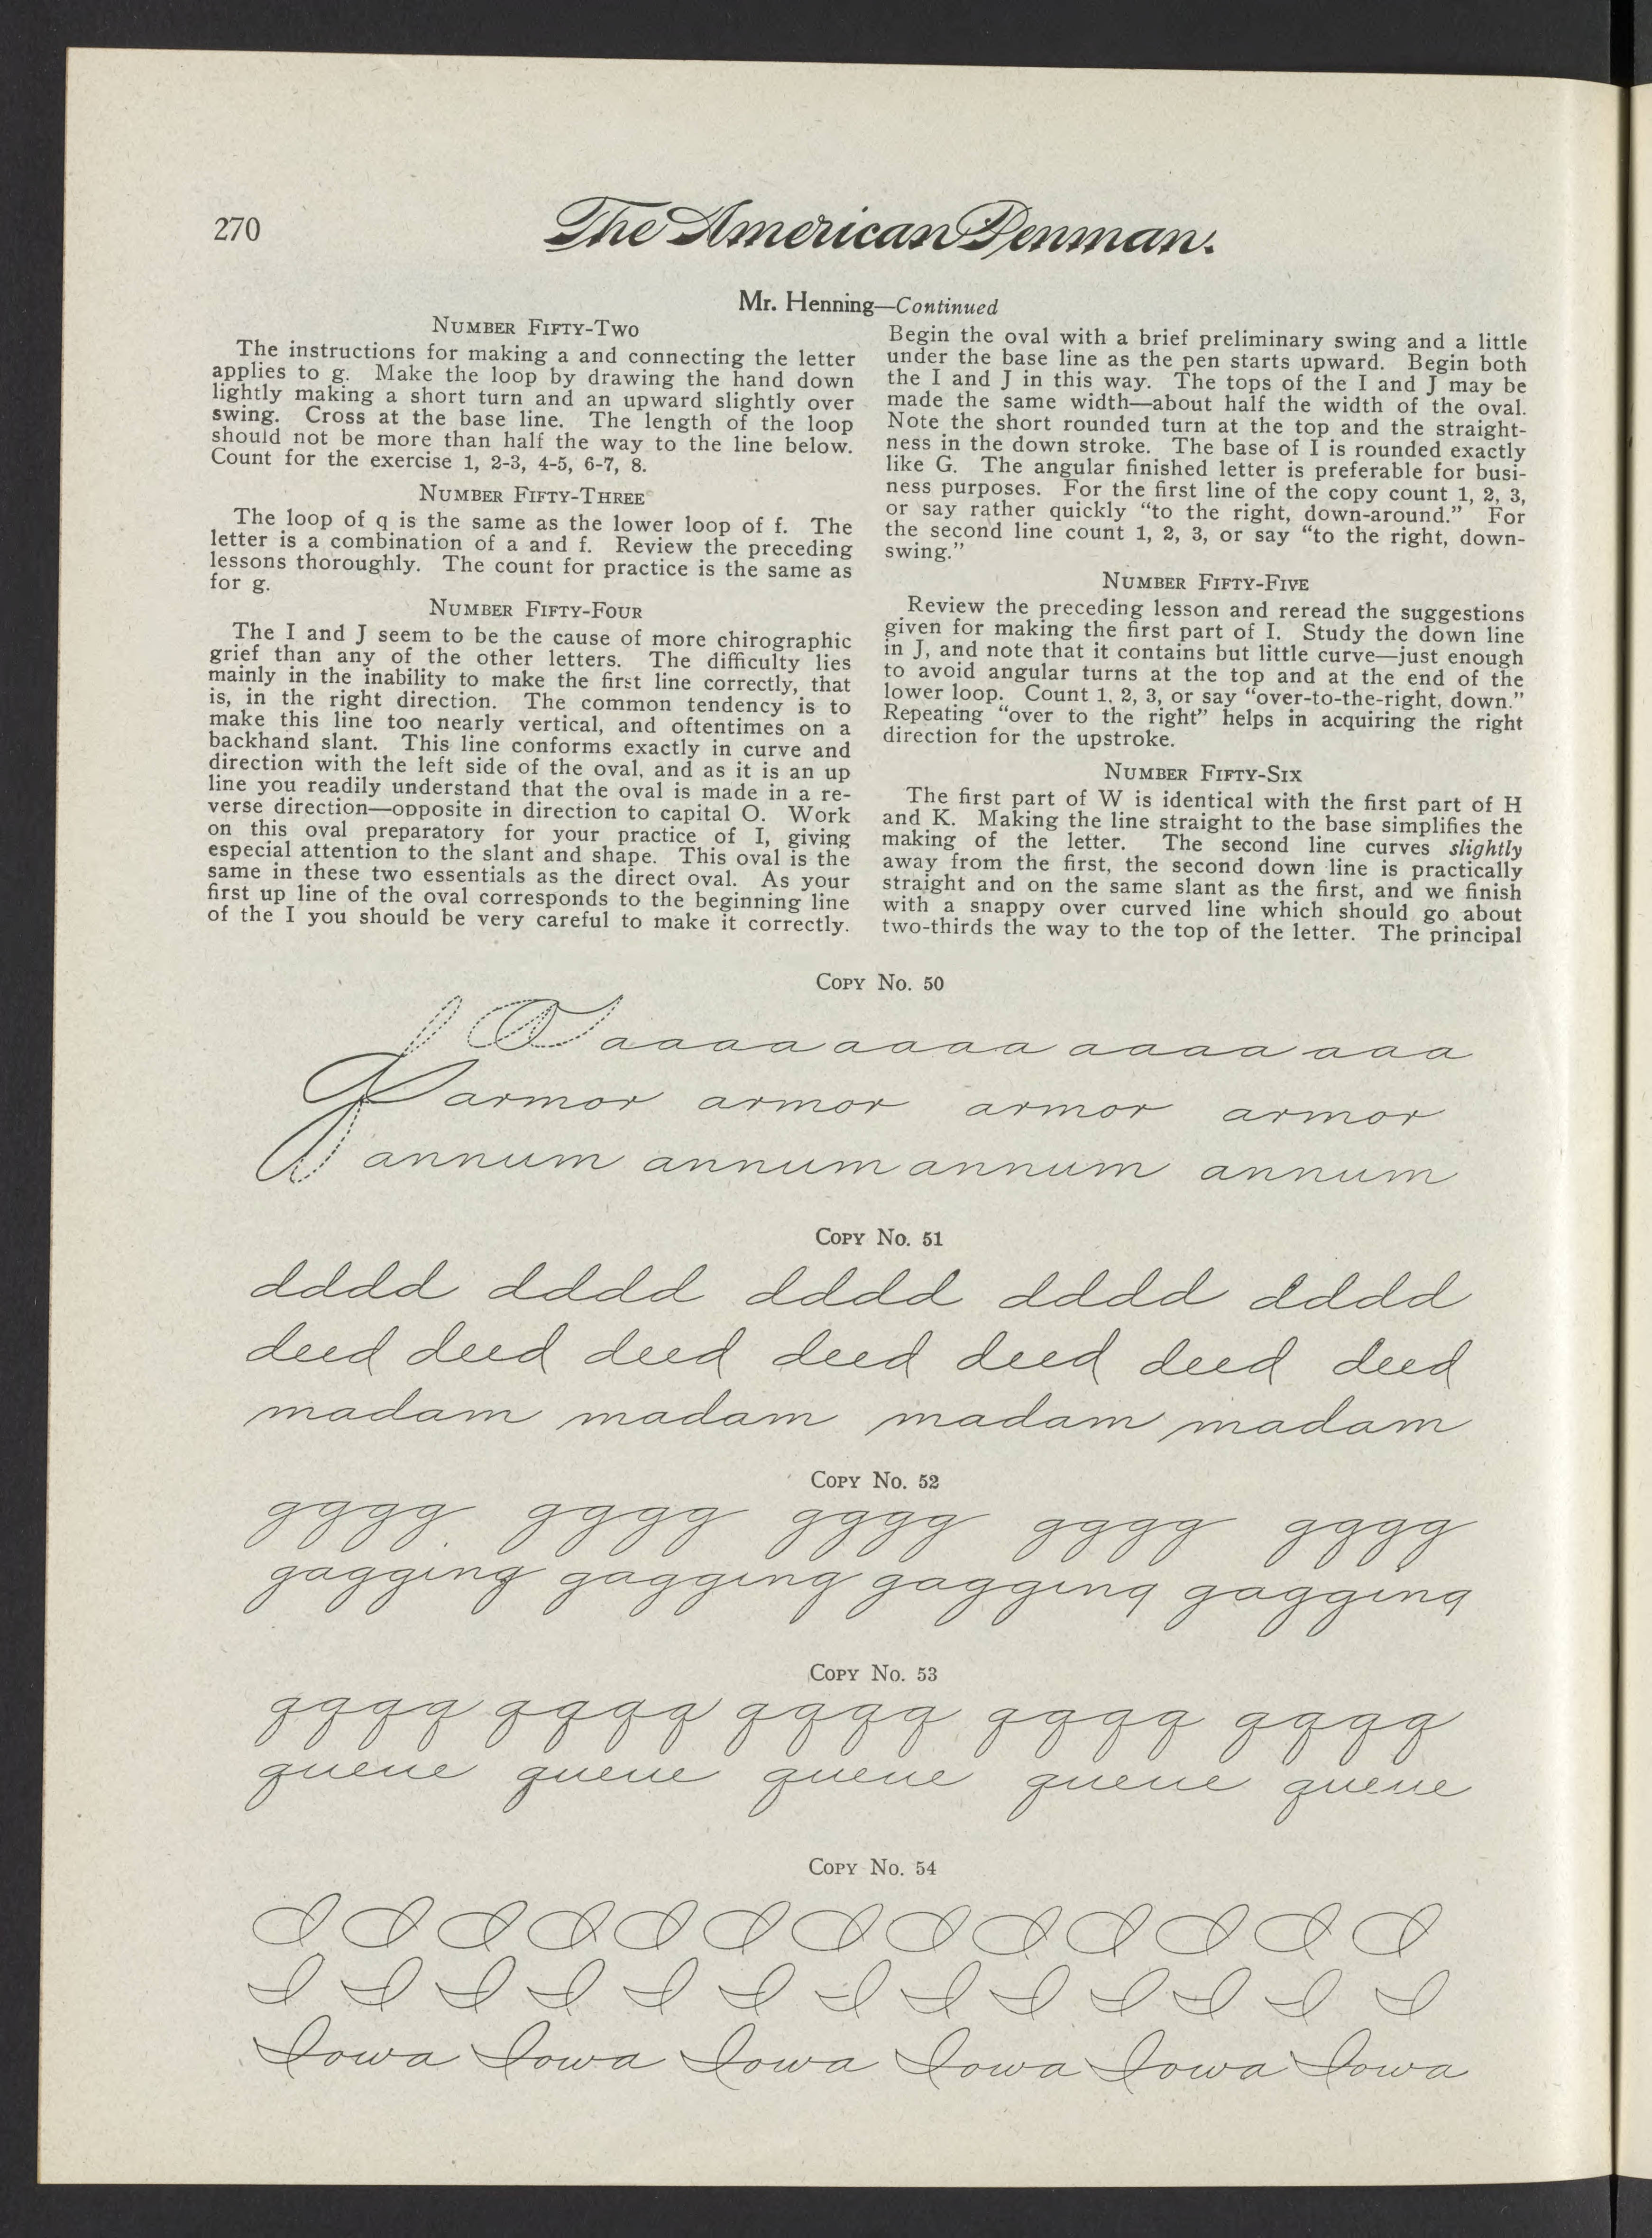 270
The American Penman.
Mr. Henning—Continued
Number Fifty-Two
The instructions for making a and connecting the letter
applies to g. Make the loop by drawing the hand down
lightly making a short turn and an upward slightly over
swing. Cross at the base line. The length of the loop
should not be more than half the way to the line below.
Count for the exercise 1, 2-3, 4-5, 6-7, 8.
Number Fifty-Three
The loop of q is the same as the lower loop of f. The
letter is a combination of a and f. Review the preceding
lessons thoroughly. The count for practice is the same as
for g.
Number Fifty-Four
The I and J seem to be the cause of more chirographic
grief than any of the other letters. The difficulty lies
mainly in the inability to make the first line correctly, that
is, in the right direction. The common tendency is to
make this line too nearly vertical, and oftentimes on a
backhand slant. This line conforms exactly in curve and
direction with the left side of the oval, and as it is an up
line you readily understand that the oval is made in a re-
verse direction—opposite in direction to capital O. Work
on this oval preparatory for your practice of I, giving
especial attention to the slant and shape. This oval is the
same in these two essentials as the direct oval. As your
first up line of the oval corresponds to the beginning line
of the I you should be very careful to make it correctly.
Begin the oval with a brief preliminary swing and a little
under the base line as the pen starts upward. Begin both
the I and J in this way. The tops of the I and J may be
made the same width—about half the width of the oval.
Note the short rounded turn at the top and the straight-
ness in the down stroke. The base of I is rounded exactly
like G. The angular finished letter is preferable for busi-
ness purposes. For the first line of the copy count 1, 2, 3,
or say rather quickly “to the right, down-around.” For
the second line count 1, 2, 3, or say “to the right, down-
swing.”
Number Fifty-Five
Review the preceding lesson and reread the suggestions
given for making the first part of I. Study the down line
in J, and note that it contains but little curve—just enough
to avoid angular turns at the top and at the end of the
lower loop. Count 1, 2, 3, or say “over-to-the-right, down.”
Repeating “over to the right” helps in acquiring the right
direction for the upstroke.
Number Fifty-Six
The first part of W is identical with the first part of H
and K. Making the line straight to the base simplifies the
making of the letter. The second line curves slightly
away from the first, the second down line is practically
straight and on the same slant as the first, and we finish
with a snappy over curved line which should go about
two-thirds the way to the top of the letter. The principal
Copy No. 50
a a a a a a a a a a a a a a a a
armor armor armor armor
annum annum annum annum
Copy No. 51
dddd dddd dddd dddd dddd
deed deed deed deed deed deed deed
madam madam madam madam
Copy No. 52
gggg gggg gggg gggg gggg
gagging gagging gagging gagging
Copy No. 53
qqqq qqqq qqqq qqqq qqqq
queue queue queue queue queue
Copy No. 54
I I I I I I I I I I I I I
Iowa Iowa Iowa Iowa Iowa Iowa